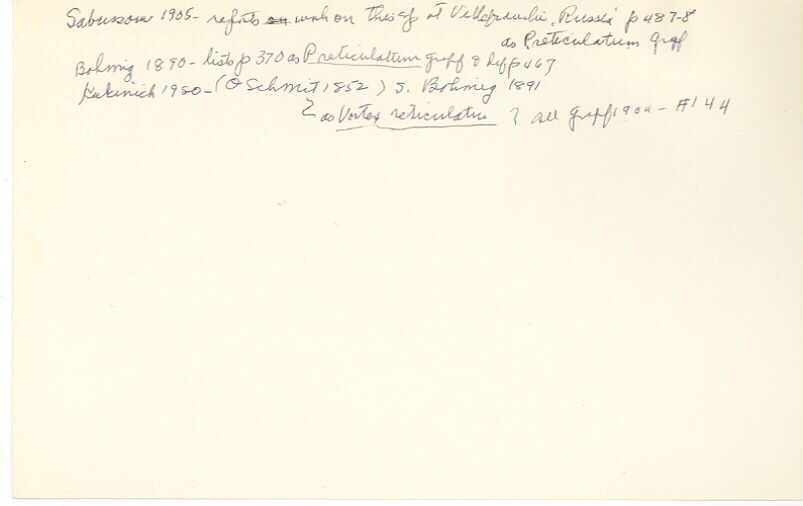 Sabussow 1905 - reports work on this sp at Villefranche, Russia p 487-8
as P reticulatum Graff
Bohmig 1890 - lists p 370 as P reticulatum Graff & p 467
(O Schmit 1852) S. Bohmig 1891
as Vortex reticulatus see Graff 1904 - #144